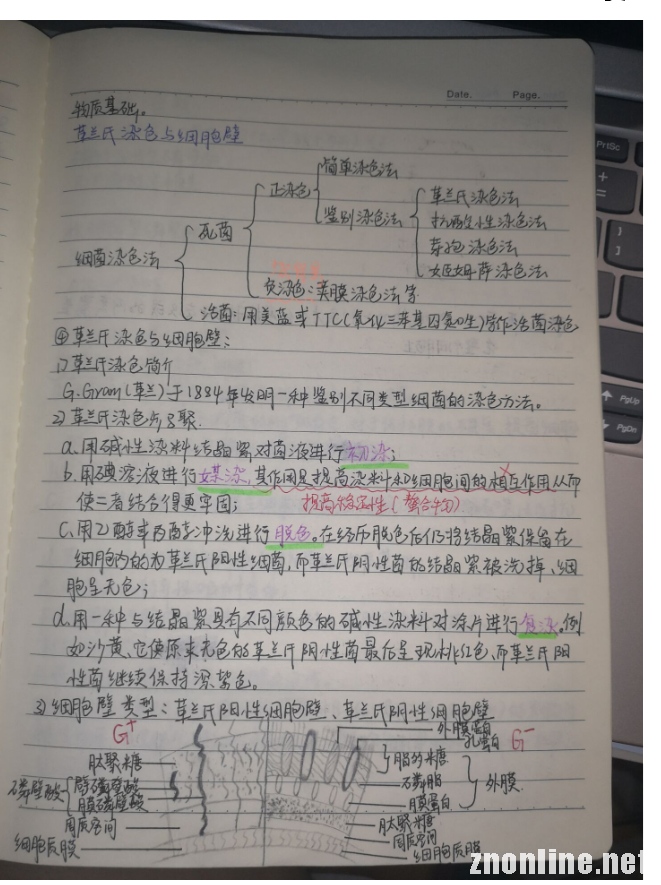 Date. Page.
物质基础。
革兰氏染色与细胞壁
简单染色法
正染色
革兰氏染色法
鉴别染色法
抗酸性染色法
死菌
芽孢染色法
细菌染色法
姬姆萨染色法
负染色：荚膜染色法等
活菌：用美蓝或TTC(氯化三苯基四氮唑)等作活菌染色
④革兰氏染色与细胞壁：
1)革兰氏染色简介
G.Gram(革兰)于1884年发明一种鉴别不同类型细菌的染色方法。
2)革兰氏染色步骤.
a.用碱性染料结晶紫对菌液进行初染；
b.用碘溶液进行媒染,其作用是提高染料和细胞间的相互作用从而
使二者结合得更牢固；
提高稳定性(螯合物)
c.用乙醇或丙酮冲洗进行脱色。在经历脱色后仍将结晶紫保留在
细胞内的为革兰氏阳性细菌,而革兰氏阴性菌的结晶紫被洗掉、细
胞呈无色；
d.用一种与结晶紫具有不同颜色的碱性染料对涂片进行复染。例
如沙黄、它使原来无色的革兰氏阴性菌最后呈现桃红色、而革兰氏阳
性菌继续保持深紫色。
3)细胞壁类型：革兰氏阳性细胞壁、革兰氏阴性细胞壁
G⁺
外膜蛋白
孔蛋白
G⁻
肽聚糖
脂多糖
磷壁酸
脂磷壁酸
膜磷壁酸
石磷脂
外膜
膜蛋白
周质空间
肽聚糖
周质空间
细胞质膜
细胞质膜
znonline.net
PrtSc
PgUp
PgDn